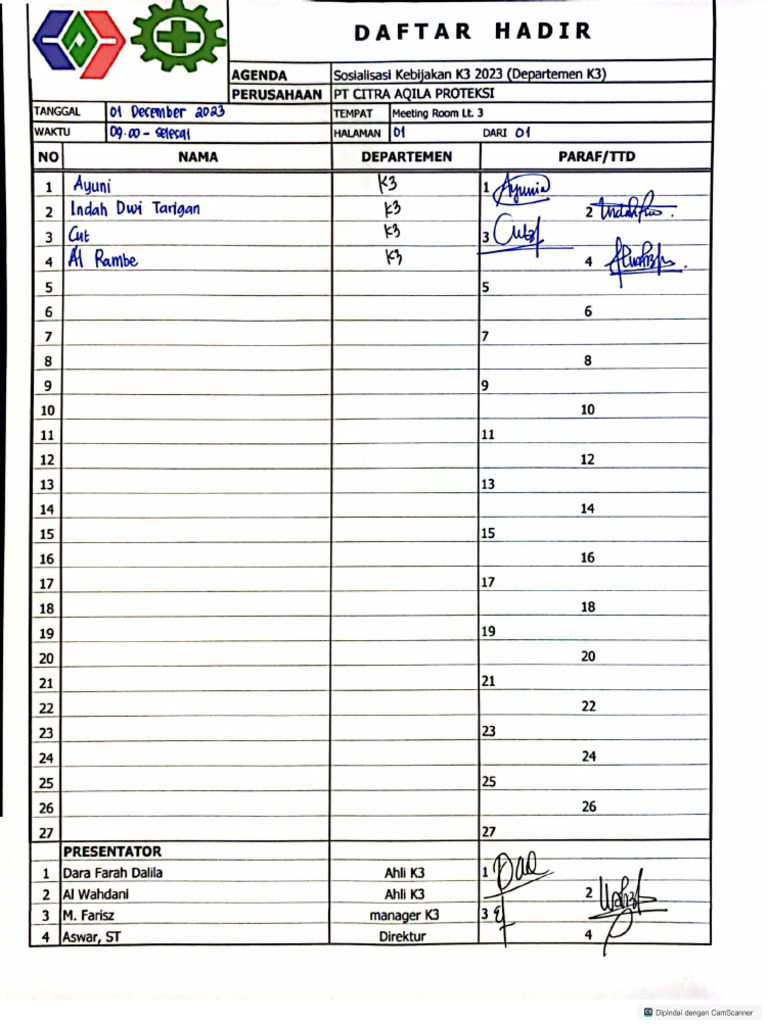 DAFTAR HADIR
AGENDA Sosialisasi Kebijakan K3 2023 (Departemen K3)
PERUSAHAAN PT CITRA AQILA PROTEKSI
TANGGAL 01 December 2023 TEMPAT Meeting Room Lt. 3
WAKTU 09.00 - selesai HALAMAN 01 DARI 01
NO NAMA DEPARTEMEN PARAF/TTD
1 Ayuni K3 1 Ayunia
2 Indah Dwi Tarigan K3 2
3 Cut K3 3
4 Al Rambe K3 4
5 5
6 6
7 7
8 8
9 9
10 10
11 11
12 12
13 13
14 14
15 15
16 16
17 17
18 18
19 19
20 20
21 21
22 22
23 23
24 24
25 25
26 26
27 27
PRESENTATOR
1 Dara Farah Dalila Ahli K3 1
2 Al Wahdani Ahli K3 2
3 M. Farisz manager K3 3
4 Aswar, ST Direktur 4
CS Dipindai dengan CamScanner